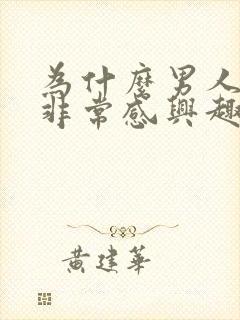 為什麼男人
非常感興趣
黃建華